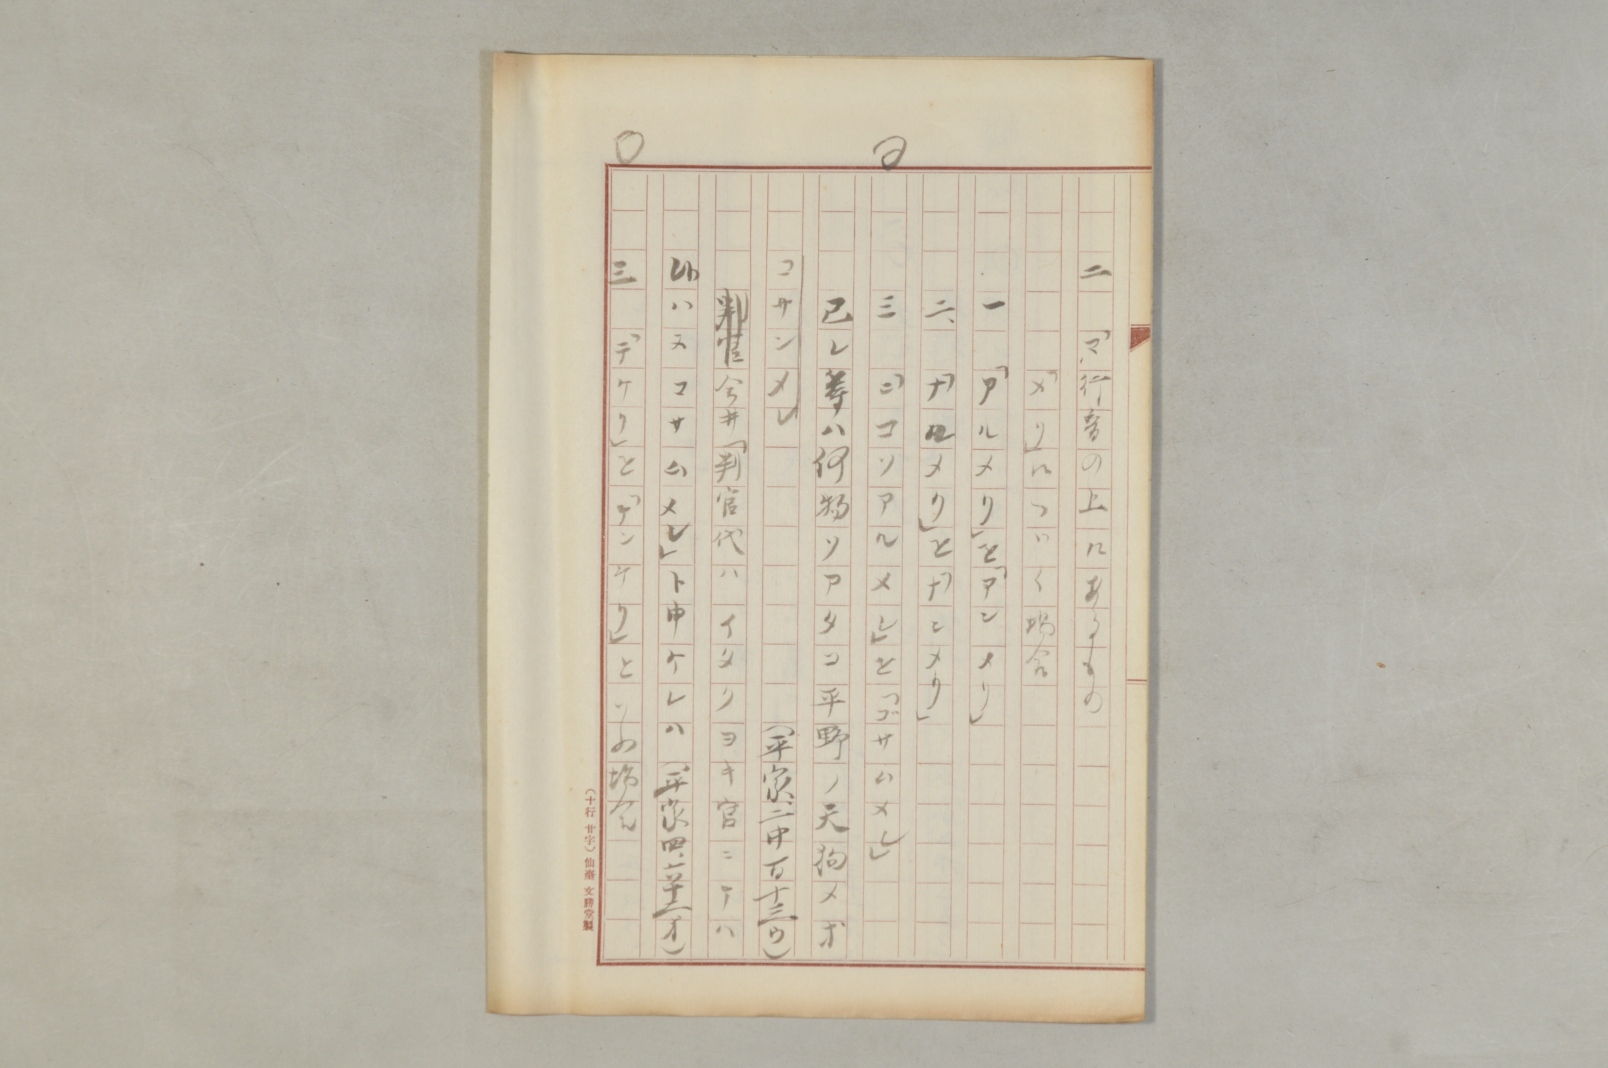 二 「マ」行音の上にあるもの
「メリ」につゞく場合
一 「アルメリ」と「アンメリ」
二、「ナルメリ」と「ナンメリ」
三 「ニコソアルメレ」と「ゴサムメレ」
己レ等ハ何物ソアタコ平野ノ天狗メオ
コサンメレ
(平家、二中百十三ウ)
今井「判官代ハイタリヨキ官ニテハ
ハヌコサムメレ」ト申ケレハ (平家四、六十二オ)
三 「テケリ」と「テンケリ」との場合
(十行 廿字) 仙臺 文勝堂製